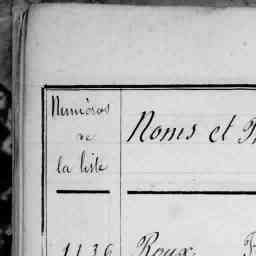 Numéros
de
la liste
Noms et P
1136 Roux